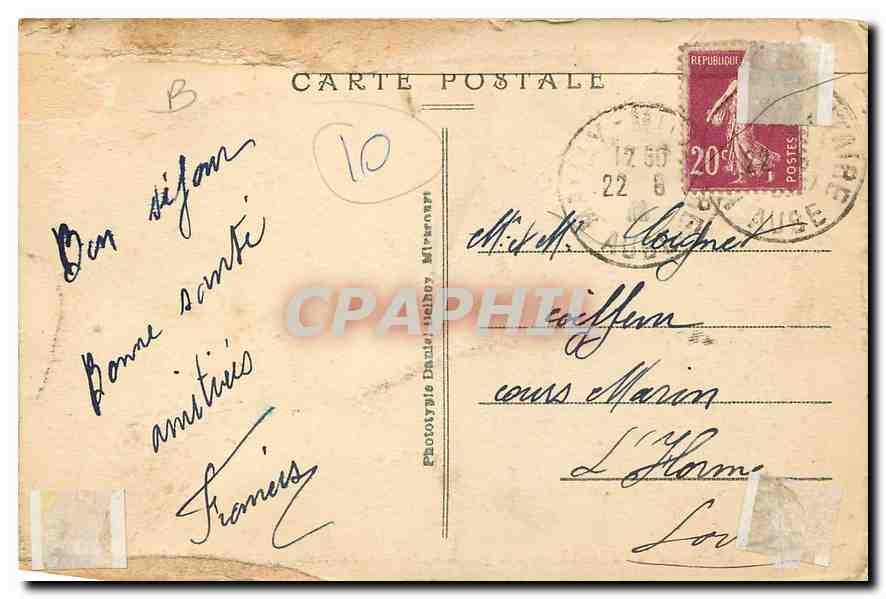 CARTE POSTALE
B
10
Bon séjour
Bonne santé
amitiés
REPUBLIQUE
20c
POSTES
12 50
22 8
AUBE
AIRE
AUBE
M. et Me
coiffeur
cours Marin
L'Horme
Phototypie Daniel Delboy, Mirecourt
CPAPHIL